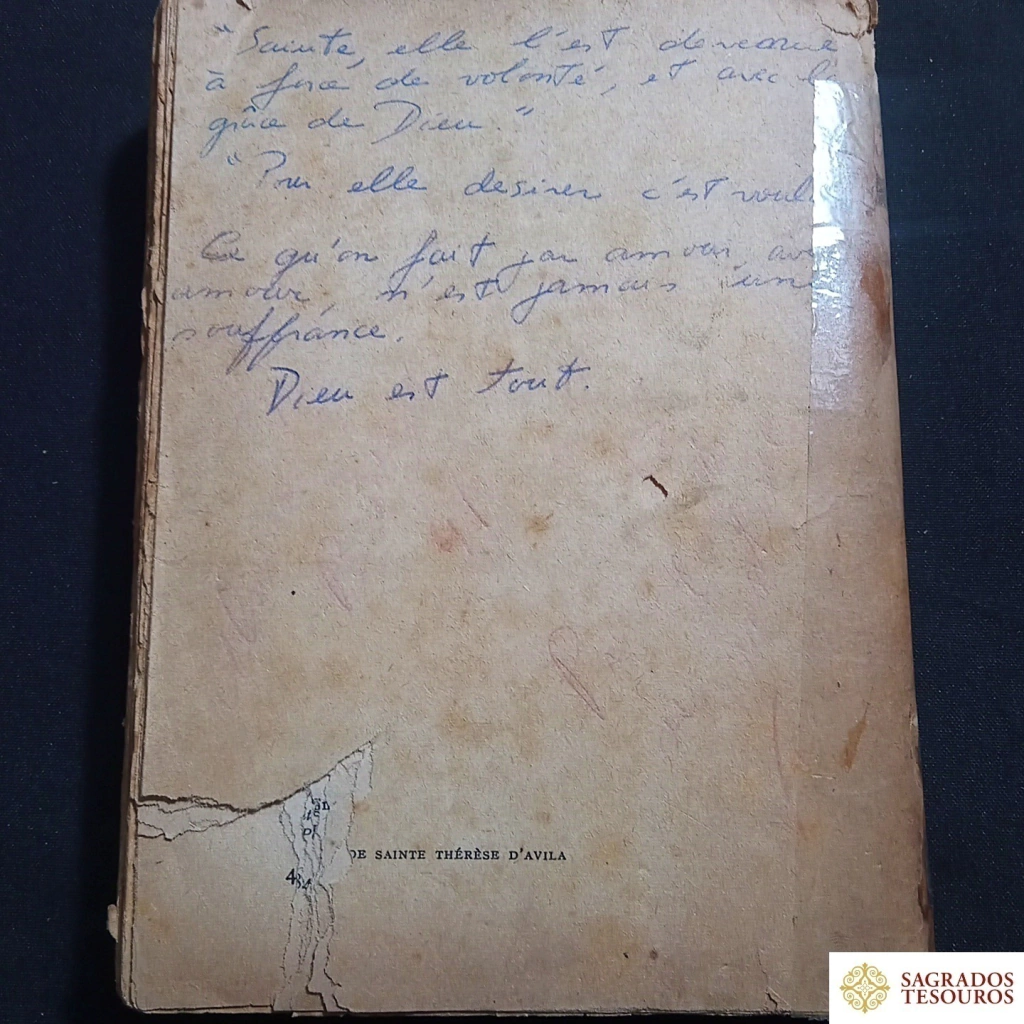 "Sainte, elle l'est devenue
à force de volonté, et avec la
grâce de Dieu."
"Pour elle desirer c'est
Ce qu'on fait par amour, avec
amour, n'est jamais une
souffrance.
Dieu est tout.
DE SAINTE THÉRÈSE D'AVILA
SAGRADOS
TESOUROS